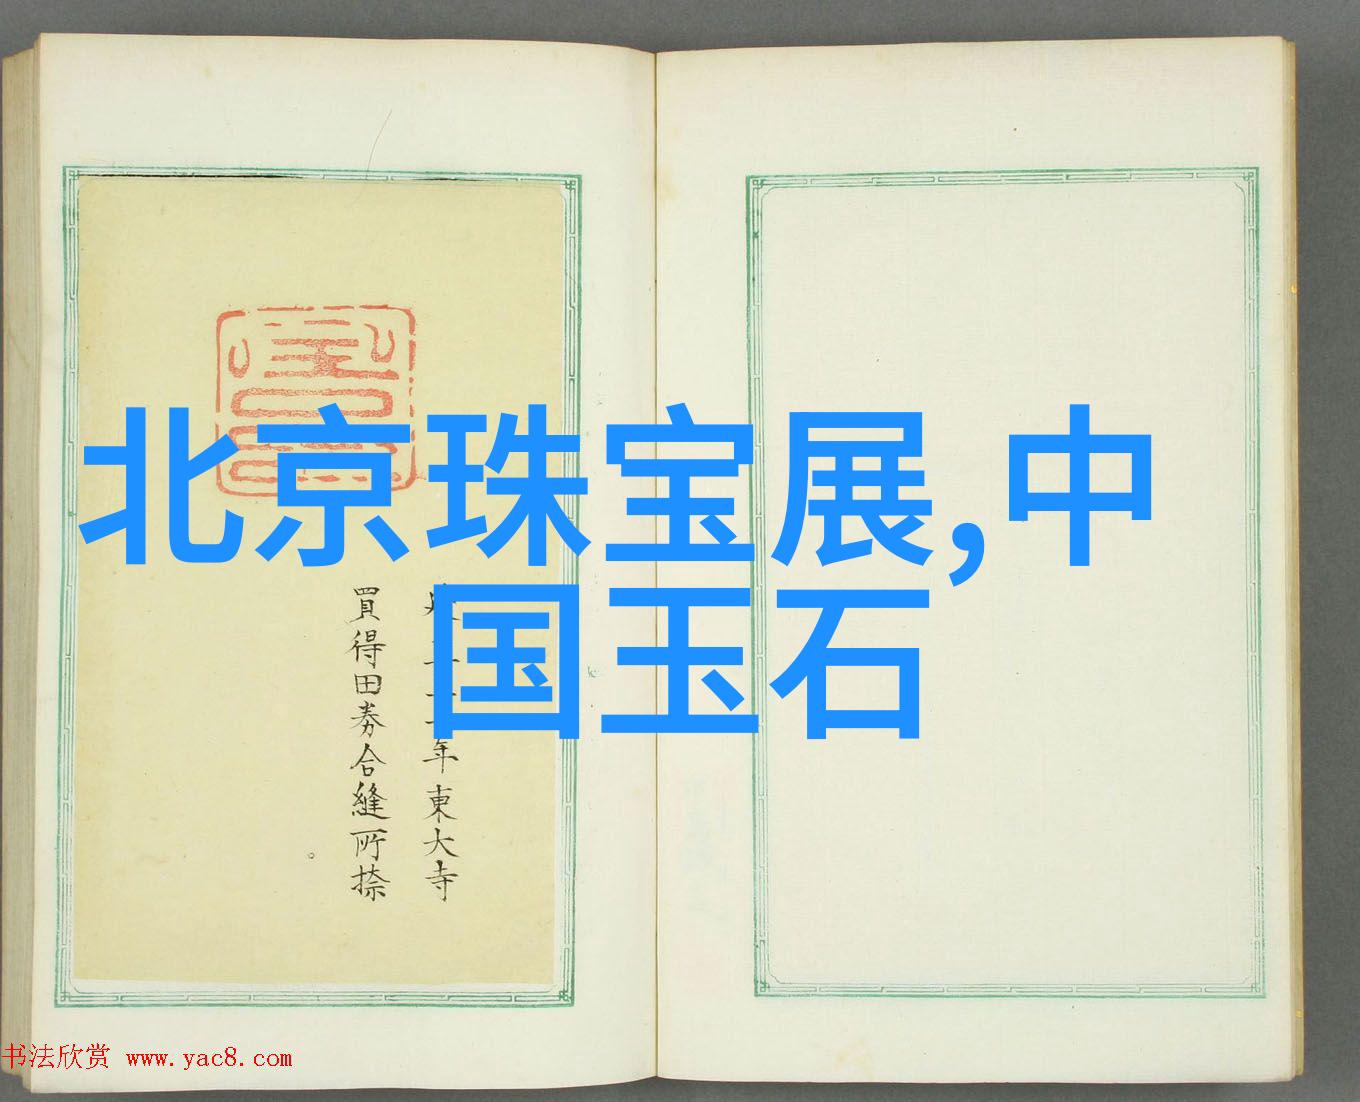 北京珠宝展,中
国玉石
年東大寺
買得田券合縫所捺
书法欣赏 www.yac8.com